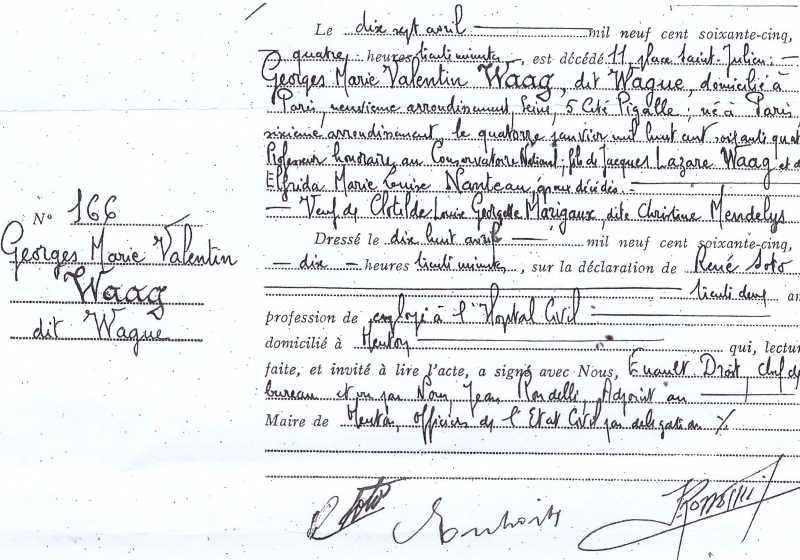 N° 166
Georges Marie Valentin
Waag
dit Wague
Le dix sept avril mil neuf cent soixante-cinq,
quatre heures trente minutes, est décédé 11, place Saint-Julien :
Georges Marie Valentin Waag, dit Wague, domicilié à
Paris, neuvième arrondissement, Seine, 5 Cité Pigalle ; né à Paris
sixième arrondissement, le quatorze janvier mil huit cent soixante quat
Professeur honoraire au Conservatoire National ; fils de Jacques Lazare Waag et d
Elfrida Marie Louise Nanteau, époux décédés. -
Veuf de Clotilde Louise Georgette Marigaux, dite Christine Mendelys
Dressé le dix huit avril mil neuf cent soixante-cinq,
dix heures minutes, sur la déclaration de René Soto
an
profession de employé à l'Hopital Civil
domicilié à Menton qui, lectur
faite, et invité à lire l'acte, a signé avec Nous, Droit, chef de
bureau et par Nous, Jean Rondelli, Adjoint au
Maire de Menton, Officiers de l'Etat Civil par délégation ./.
Soto